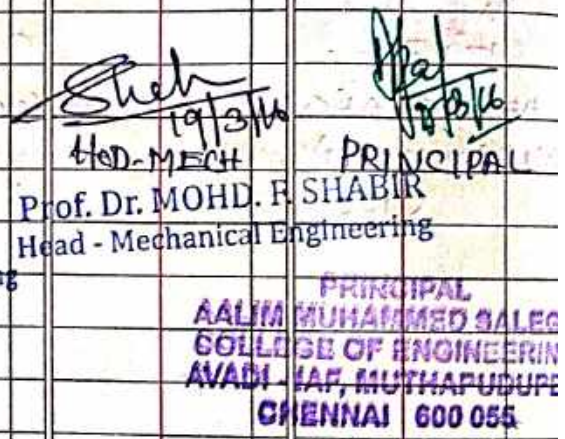 19/3/16
HOD-MECH
PRINCIPAL
Prof. Dr. MOHD. F SHABIR
Head - Mechanical Engineering
PRINCIPAL
AALIM MUHAMMED SALEG
COLLEGE OF ENGINEERIN
AVADI - IAF, MUTHAPUDUPE
CHENNAI 600 055